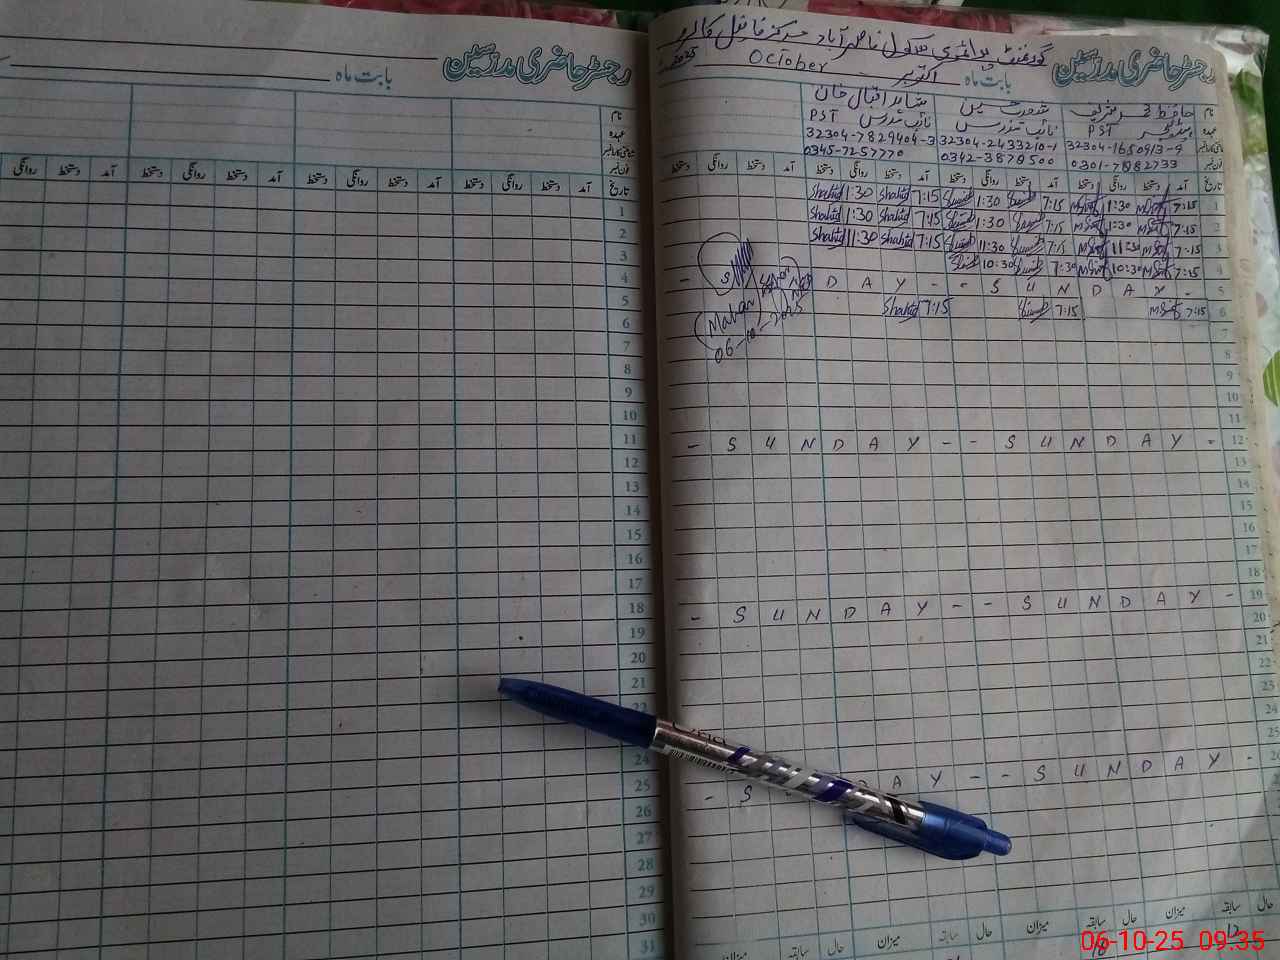 گورنمنٹ پرائمری سکول ناصر آباد مرکز فاضل کالرو
رجسٹر حاضری مدرسین بابت ماہ اکتوبر October 2025
نام حافظ محمد شریف شاہد اقبال خان
عہدہ PST نائب مدرس نائب مدرس PST
32304-1650913-9 32304-2433210-1 32304-7829404-3
0301-7182733 0342-3879500 0345-7257770
تاریخ آمد دستخط روانگی دستخط آمد دستخط روانگی دستخط آمد دستخط روانگی دستخط آمد دستخط روانگی دستخط
1 7:15 1:30 7:15 1:30 7:15 Shahid 1:30 Shahid
2 7:15 1:30 7:15 1:30 7:15 Shahid 1:30 Shahid
3 7:15 11:30 7:15 11:30 7:15 Shahid 11:30 Shahid
4 7:15 10:30 7:30 10:30
5 - S U N D A Y - - S U N D A Y -
6 7:15 7:15 7:15 Shahid
06-10-2025
7
8
9
10
11
12 - S U N D A Y - - S U N D A Y -
13
14
15
16
17
18
19 - S U N D A Y - - S U N D A Y -
20
21
22
23
24
25
26 - S D A Y - - S U N D A Y -
حال سابقہ میزان حال سابقہ میزان حال سابقہ میزان حال سابقہ میزان
12
18
رجسٹر حاضری مدرسین
بابت ماہ
نام
عہدہ
تاریخ آمد دستخط روانگی دستخط آمد دستخط روانگی دستخط آمد دستخط روانگی دستخط آمد دستخط روانگی
1
2
3
4
5
6
7
8
9
10
11
12
13
14
15
16
17
18
19
20
21
22
24
25
26
27
28
29
30
31
06-10-25 09:35